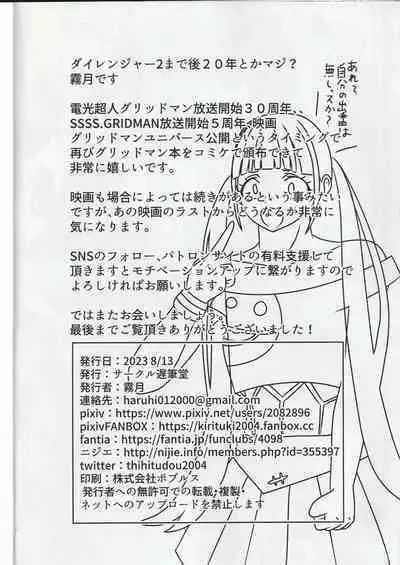 ダイレンジャー2まで後２０年とかマジ？
霧月です
電光超人グリッドマン放送開始３０周年、、
SSSS.GRIDMAN放送開始５周年、映画
グリッドマンユニバース公開というタイミングで
再びグリッドマン本をコミケで頒布できて
非常に嬉しいです。
映画も場合によっては続きがあるという事みたい
ですが、あの映画のラストからどうなるか非常に
気になります。
SNSのフォロー、パトロンサイトの有料支援して
頂きますとモチベーションアップに繋がりますので
よろしければお願いします。
ではまたお会いしましょう？。
最後までご覧頂きありがとうございました！
あれて
自分の出番は
無しっスか？
発行日：2023 8/13
発行：サークル遅筆堂
発行者：霧月
連絡先：haruhi012000@gmail.com
pixiv：https://www.pixiv.net/users/2082896
pixivFANBOX：https://kirituki2004.fanbox.cc
fantia：https://fantia.jp/funclubs/4098
ニジエ：http://nijie.info/members.php?id=355397
twitter：thihitudou2004
印刷：株式会社ポプルス
発行者への無許可での転載・複製・
ネットへのアップロードを禁止します